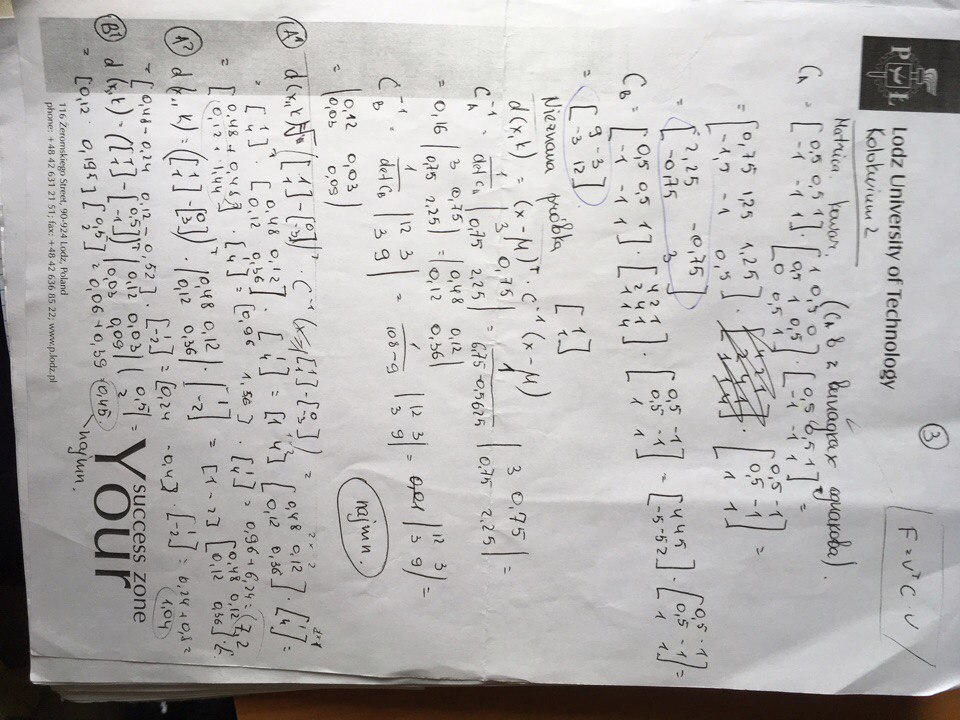 ③
F = vᵀC·v
Lodz University of Technology
Kolokwium 2
P Ł
Matrica kowar. (Cₙ B 2 випадках однакова).
C_A = [0,5 0,5 1; -1 -1 1] · [1 0,5 0; 0,5 1 0,5; 0 0,5 1] · [0,5 -1; 0,5 -1; 1 1] =
= [0,75 1,25 1,25; -1,5 -1 0,5] · [0,5 -1; 0,5 -1; 1 1] =
= [2,25 -0,75; -0,75 3]
C_B = [0,5 0,5 1; -1 -1 1] · [4 2 1; 2 4 1; 1 1 4] · [0,5 -1; 0,5 -1; 1 1] = [4 4 5; -5 -5 2] · [0,5 -1; 0,5 -1; 1 1] =
= [9 -3; -3 12]
Nieznana próbka [1; 1]
d(x,k) = (x-M)ᵀ · C⁻¹ (x-M)
C_A⁻¹ = 1/det C_A |3 0,75; 0,75 2,25| = 1/6,75-0,5625 |3 0,75; 0,75 2,25| =
= 0,16 |3 0,75; 0,75 2,25| = |0,48 0,12; 0,12 0,36|
C_B⁻¹ = 1/det C_B |12 3; 3 9| = 1/108-9 |12 3; 3 9| = 0,01 |12 3; 3 9| =
= |0,12 0,03; 0,03 0,09|
najmn.
(A¹) d(x,k) = [[1; 1]-[0; -3]]ᵀ · C⁻¹ ([1; 1]-[0; -3]) =
= [1; 4]ᵀ · [0,48 0,12; 0,12 0,36] · [1; 4] = [1 4] [0,48 0,12; 0,12 0,36] · [1; 4] =
= [0,48+0,48 0,12+1,44] · [1; 4] = [0,96 1,56] · [1; 4] = 0,96+6,24 = 7,2
(A²) d(x,k) = ([1; 1]-[0; 3])ᵀ · |0,48 0,12; 0,12 0,36| · [1; -2] = [1 -2] [0,48 0,12; 0,12 0,36] ·
= [0,48-0,24 0,12-0,52] · [1; -2] = [0,24 -0,4] · [1; -2] = 0,24+0,8 = 1,04
(B¹) d(x,k) = ([1; 1]-[0,5; -1])ᵀ |0,12 0,03; 0,03 0,09| (0,5; 2) =
= [0,12 0,195] [0,5; 2] = 0,06+0,39 = 0,45
najmn.
Your
success zone
116 Żeromskiego Street, 90-924 Lodz, Poland
phone: +48 42 631 21 51; fax: +48 42 636 85 22; www.p.lodz.pl